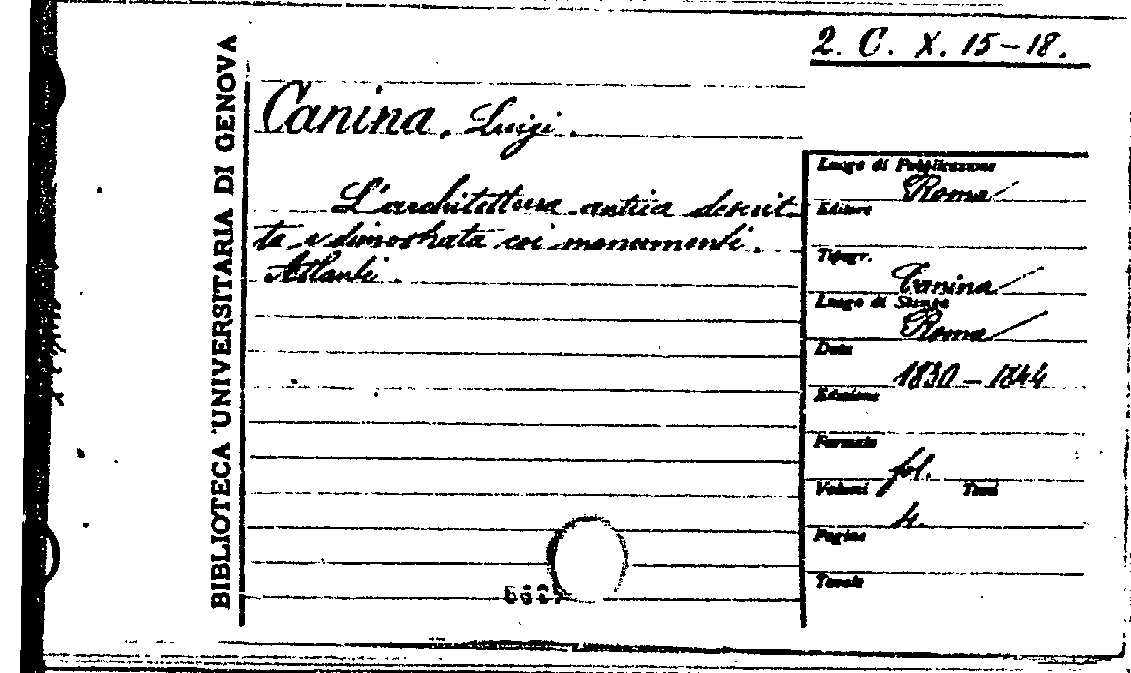 2. C. X. 15-18.
BIBLIOTECA UNIVERSITARIA DI GENOVA
Canina, Luigi.
L'architettura antica descrit-
ta e dimostrata coi monumenti.
Atlanti.
Luogo di Pubblicazione
Roma
Editore
Tipogr.
Canina
Luogo di Stampa
Roma
Data
1830-1844
Edizione
Formato
fol.
Volumi Tomi
4
Pagine
Tavole